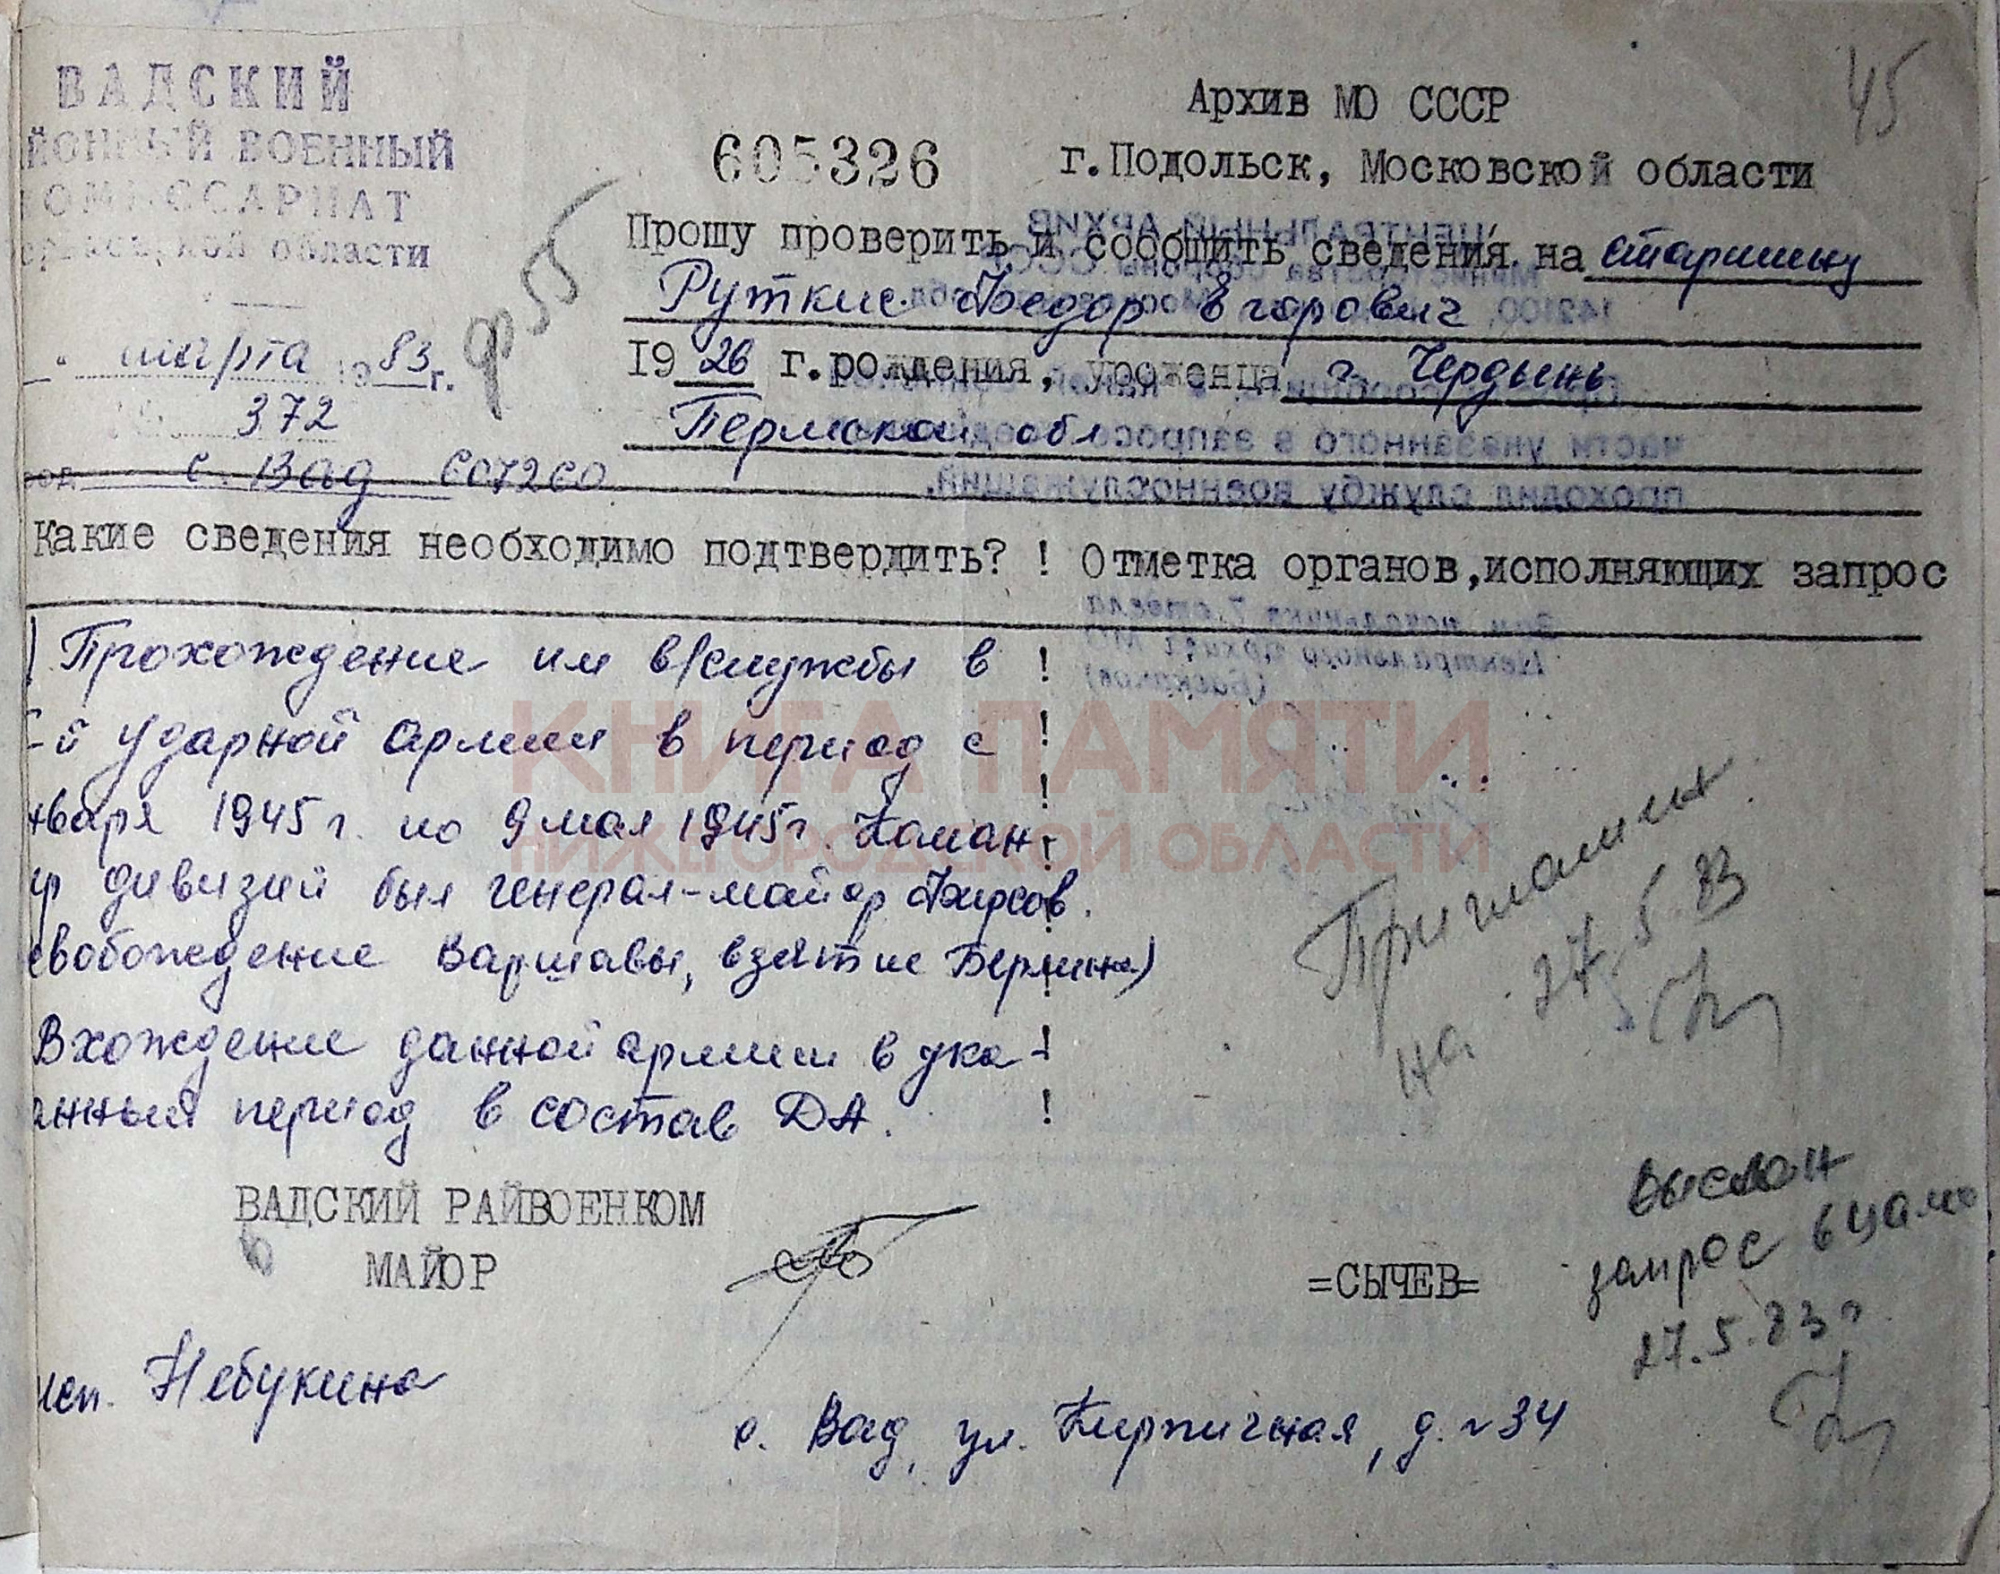 45
ВАДСКИЙ
ЙОННЫЙ ВОЕННЫЙ
ОМИССАРИАТ
орьковской области
марта 1983 г.
372
с. Вад 607260
ф 55
605326
Архив МО СССР
г.Подольск, Московской области
Прошу проверить и сообщить сведения на старшину
Руткис Федор Егорович
19 26 г.рождения, уроженца г. Чердынь
Пермской обл
Какие сведения необходимо подтвердить? ! Отметка органов,исполняющих запрос
Прохождение им в/службы в !
-й ударной армии в период с !
нваря 1945 г. по 9 мая 1945 г. Коман- !
ир дивизии был генерал-майор Фирсов. !
свобождение Варшавы, взятие Берлина) !
Вхождение данной армии в ука- !
анный период в состав ДА. !
Приглашен
на 27.5.83
ВАДСКИЙ РАЙВОЕНКОМ
МАЙОР =СЫЧЕВ=
выслан
запрос в цамо
27.5.83 г.
исп. Небукина
с. Вад, ул. Кирпичная, д. № 34
КНИГА ПАМЯТИ
НИЖЕГОРОДСКОЙ ОБЛАСТИ